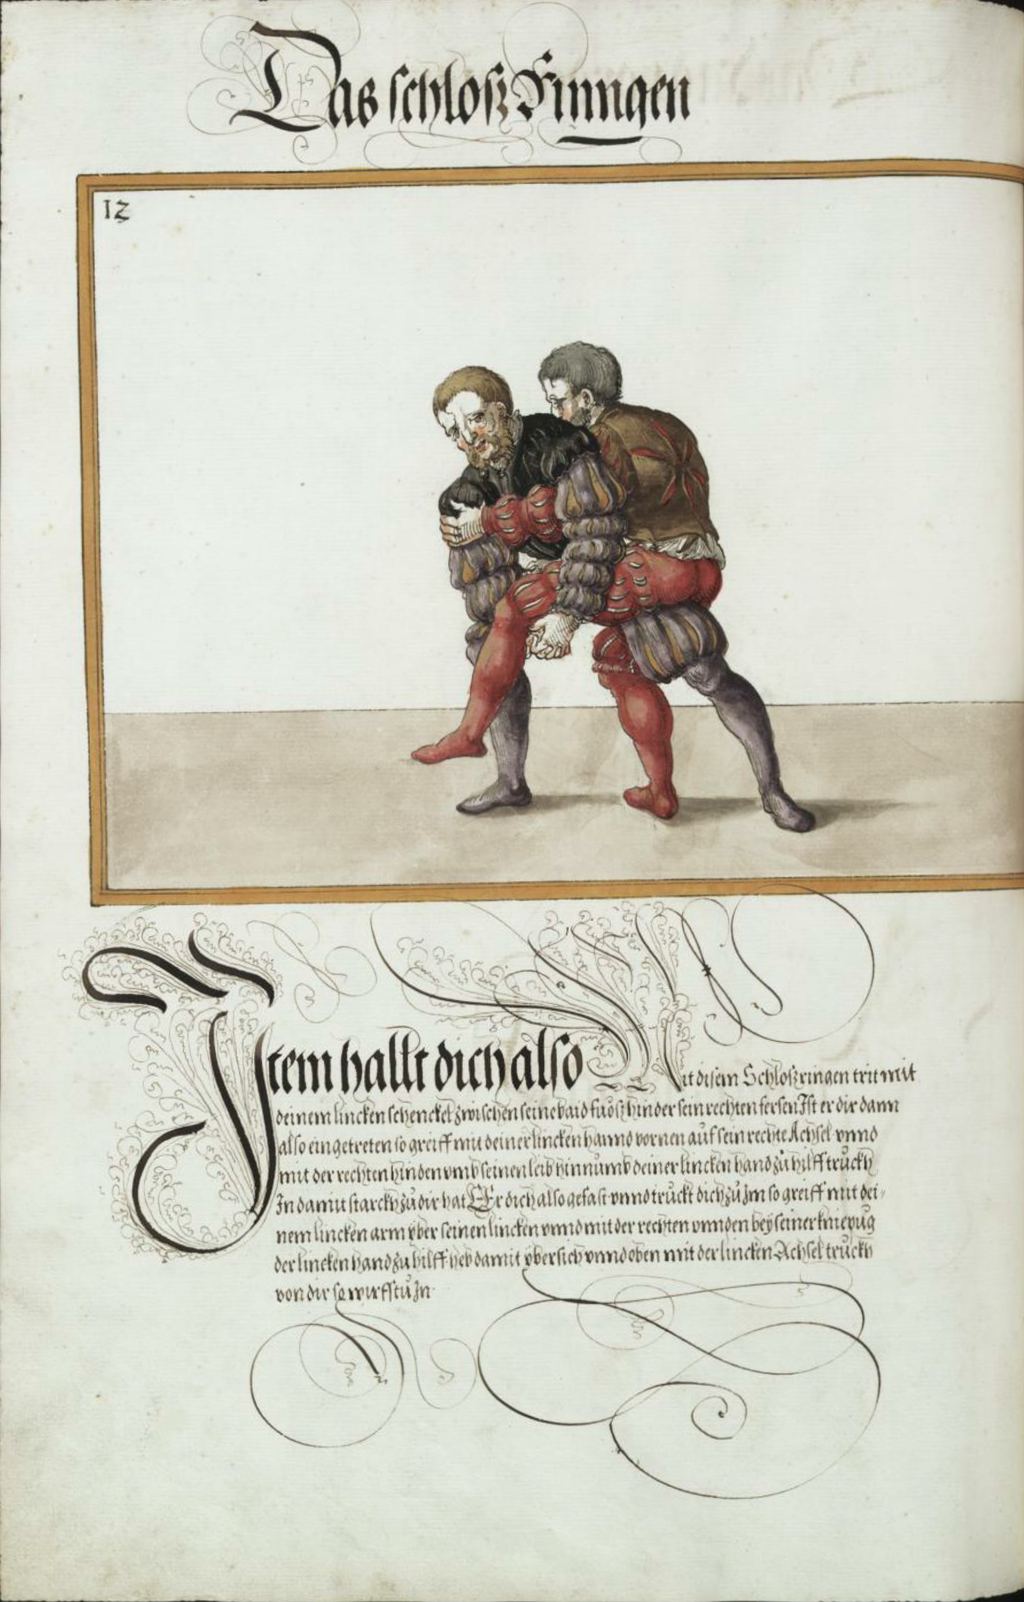 Das schlosz Ringen
12
Item hallt dich also Mit disem Schlosz ringen trit mit
deinem lincken schenckel zwischen seine baid fuösz hinder sein rechten fersen Ist er dir dann
also eingetreten so greiff mit deiner lincken hannd vornen auf sein rechte Achsel vnnd
mit der rechten hinden vmb seinen leib hinnumb deiner lincken hand zů hilff truckh
In damit starckh zů dir hat Er dich also gefast vnnd truckt dich zů Im so greiff mit dei=
nem lincken arm yber seinen lincken vnnd mit der rechten vnnden bey seiner kniepug
der lincken hand zu hilff heb damit ybersich vnnd oben mit der lincken Achsel truckh
von dir so wirffstu In